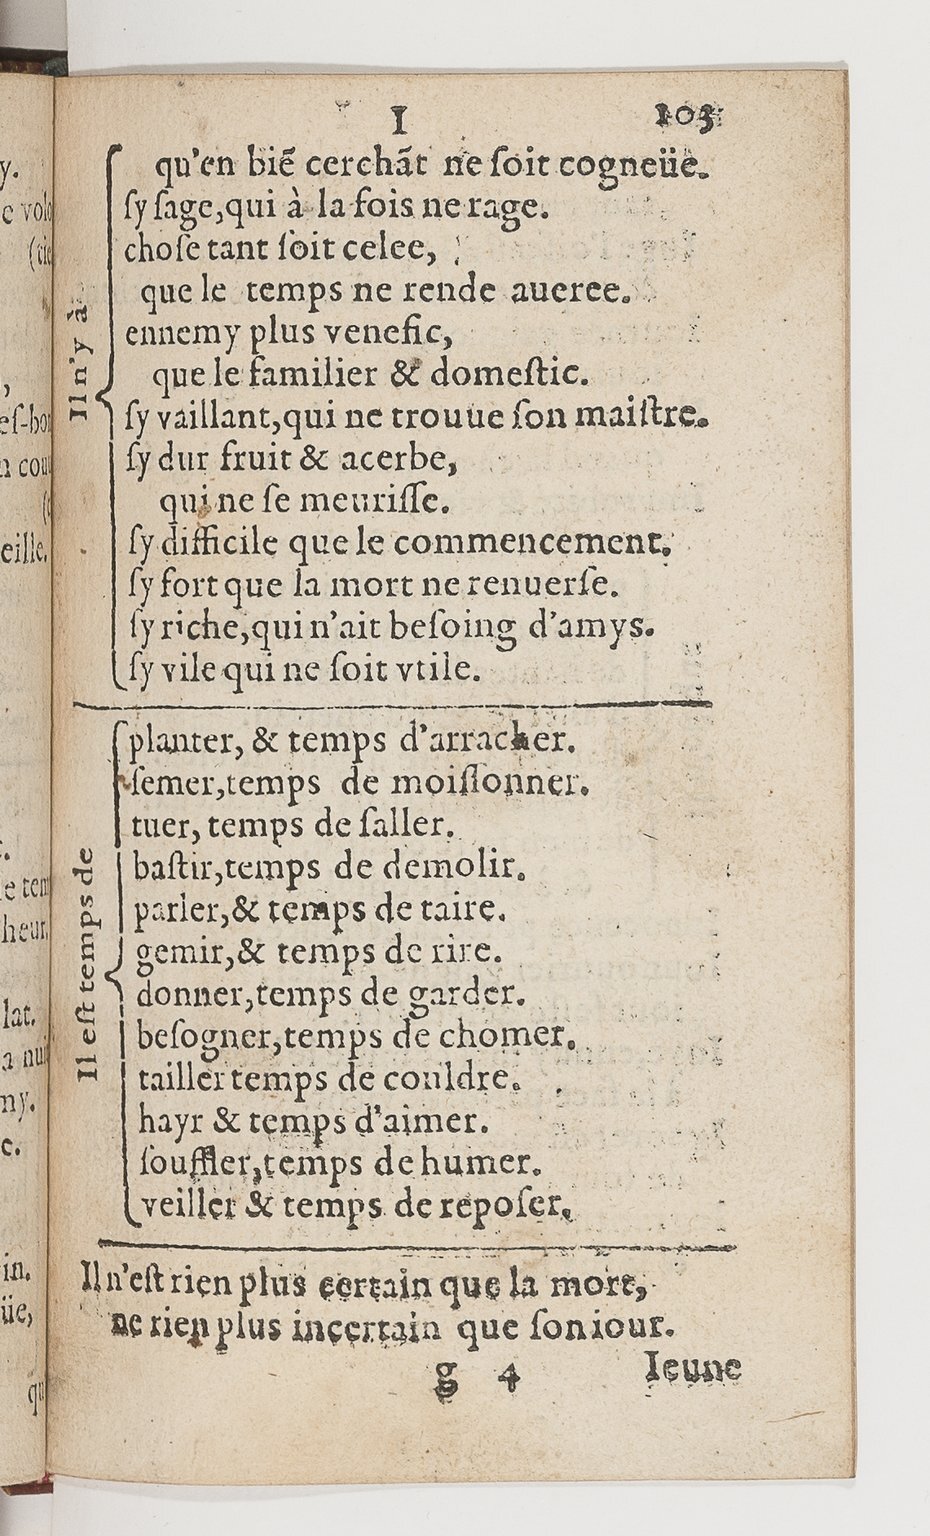 I 103
qu'en biẽ cerchãt ne ſoit cogneüe.
ſy ſage,qui à la fois ne rage.
choſe tant ſoit celee,
que le temps ne rende aueree.
Il n'y à
ennemy plus venefic,
que le familier & domeſtic.
ſy vaillant,qui ne trouue ſon maiſtre.
ſy dur fruit & acerbe,
qui ne ſe meuriſſe.
ſy difficile que le commencement.
ſy fort que la mort ne renuerſe.
ſy riche,qui n'ait beſoing d'amys.
ſy vile qui ne ſoit vtile.
planter, & temps d'arracher.
ſemer,temps de moiſſonner.
tuer, temps de ſaller.
baſtir,temps de demolir.
parler,& temps de taire.
Il eſt temps de
gemir,& temps de rire.
donner,temps de garder.
beſogner,temps de chomer.
tailler temps de couldre.
hayr & temps d'aimer.
ſouffler,temps de humer.
veiller & temps de repoſer.
Il n'eſt rien plus certain que la mort,
ne rien plus incertain que ſon iour.
g 4 Ieune